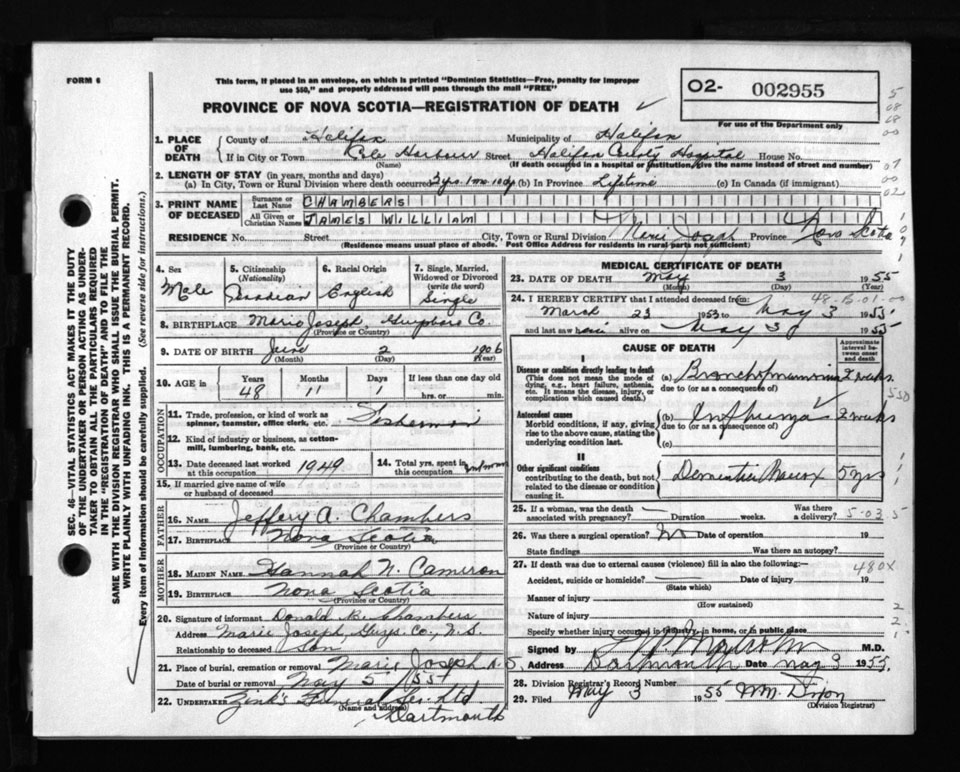 FORM 6
This form, if placed in an envelope, on which is printed "Dominion Statistics—Free, penalty for improper
use $50," and properly addressed will pass through the mail "FREE"
PROVINCE OF NOVA SCOTIA—REGISTRATION OF DEATH
O2- 002955
For use of the Department only
SEC. 46—VITAL STATISTICS ACT MAKES IT THE DUTY
OF THE UNDERTAKER OR PERSON ACTING AS UNDER-
TAKER TO OBTAIN ALL THE PARTICULARS REQUIRED
IN THE "REGISTRATION OF DEATH" AND TO FILE THE
SAME WITH THE DIVISION REGISTRAR WHO SHALL ISSUE THE BURIAL PERMIT.
WRITE PLAINLY WITH UNFADING INK. THIS IS A PERMANENT RECORD.
Every item of information should be carefully supplied. (See reverse side for instructions.)
1. PLACE OF DEATH
County of Halifax Municipality of Halifax
If in City or Town Cole Harbour Street Halifax County Hospital House No.
(Name) (If death occurred in a hospital or institution, give the name instead of street and number)
2. LENGTH OF STAY (in years, months and days)
(a) In City, Town or Rural Division where death occurred 3 yrs. 1 mo. 10 dys (b) In Province Lifetime (c) In Canada (if immigrant)
3. PRINT NAME OF DECEASED
Surname or Last Name CHAMBERS
All Given or Christian Names JAMES WILLIAM
RESIDENCE No. Street City, Town or Rural Division Marie Joseph Province Nova Scotia
(Residence means usual place of abode. Post Office Address for residents in rural parts not sufficient)
4. Sex Male
5. Citizenship (Nationality) Canadian
6. Racial Origin English
7. Single, Married, Widowed or Divorced (write the word) Single
8. BIRTHPLACE Marie Joseph Guysboro Co.
(Province or Country)
9. DATE OF BIRTH June 2 1906
(Month) (Day) (Year)
10. AGE in Years 48 Months 11 Days 1 If less than one day old
hrs. or min.
OCCUPATION
11. Trade, profession, or kind of work as
spinner, teamster, office clerk, etc. Fisherman
12. Kind of industry or business, as cotton-
mill, lumbering, bank, etc.
13. Date deceased last worked
at this occupation 1949
14. Total yrs. spent in
this occupation unknown
15. If married give name of wife
or husband of deceased
FATHER
16. NAME Jeffery A. Chambers
17. BIRTHPLACE Nova Scotia
(Province or Country)
MOTHER
18. MAIDEN NAME Hannah N. Cameron
19. BIRTHPLACE Nova Scotia
(Province or Country)
20. Signature of informant Donald Chambers
Address Marie Joseph, Guys. Co., N.S.
Relationship to deceased Son
21. Place of burial, cremation or removal Marie Joseph N.S.
Date of burial or removal May 5 1955
22. UNDERTAKER Zink's Funeral Ser. Ltd
(Name and address)
Dartmouth
MEDICAL CERTIFICATE OF DEATH
23. DATE OF DEATH May 3 1955
(Month) (Day) (Year)
24. I HEREBY CERTIFY that I attended deceased from:
March 23 1953 to May 3 1955
and last saw him alive on May 3 1955
CAUSE OF DEATH
Approximate
interval be-
tween onset
and death
I
Disease or condition directly leading to death
(This does not mean the mode of
dying, e.g., heart failure, asthenia,
etc. It means the disease, injury, or
complication which caused death.)
(a) Bronchopneumonia 2 weeks
due to (or as a consequence of)
Antecedent causes
Morbid conditions, if any, giving
rise to the above cause, stating the
underlying condition last.
(b) Influenza 2 weeks
due to (or as a consequence of)
(c)
II
Other significant conditions
contributing to the death, but not
related to the disease or condition
causing it.
Dementia Praecox 5 yrs
25. If a woman, was the death
associated with pregnancy? Duration weeks. Was there
a delivery?
5-03.5
26. Was there a surgical operation? No Date of operation 19
State findings Was there an autopsy?
27. If death was due to external causes (violence) fill in also the following:-
480X
Accident, suicide or homicide? Date of injury 19
(State which)
Manner of injury
(How sustained)
Nature of injury
Specify whether injury occurred in industry, in home, or in public place
Signed by M.D.
Address Dartmouth Date May 3 1955
28. Division Registrar's Record Number
29. Filed May 3 1955 Wm. Dixon
(Division Registrar)